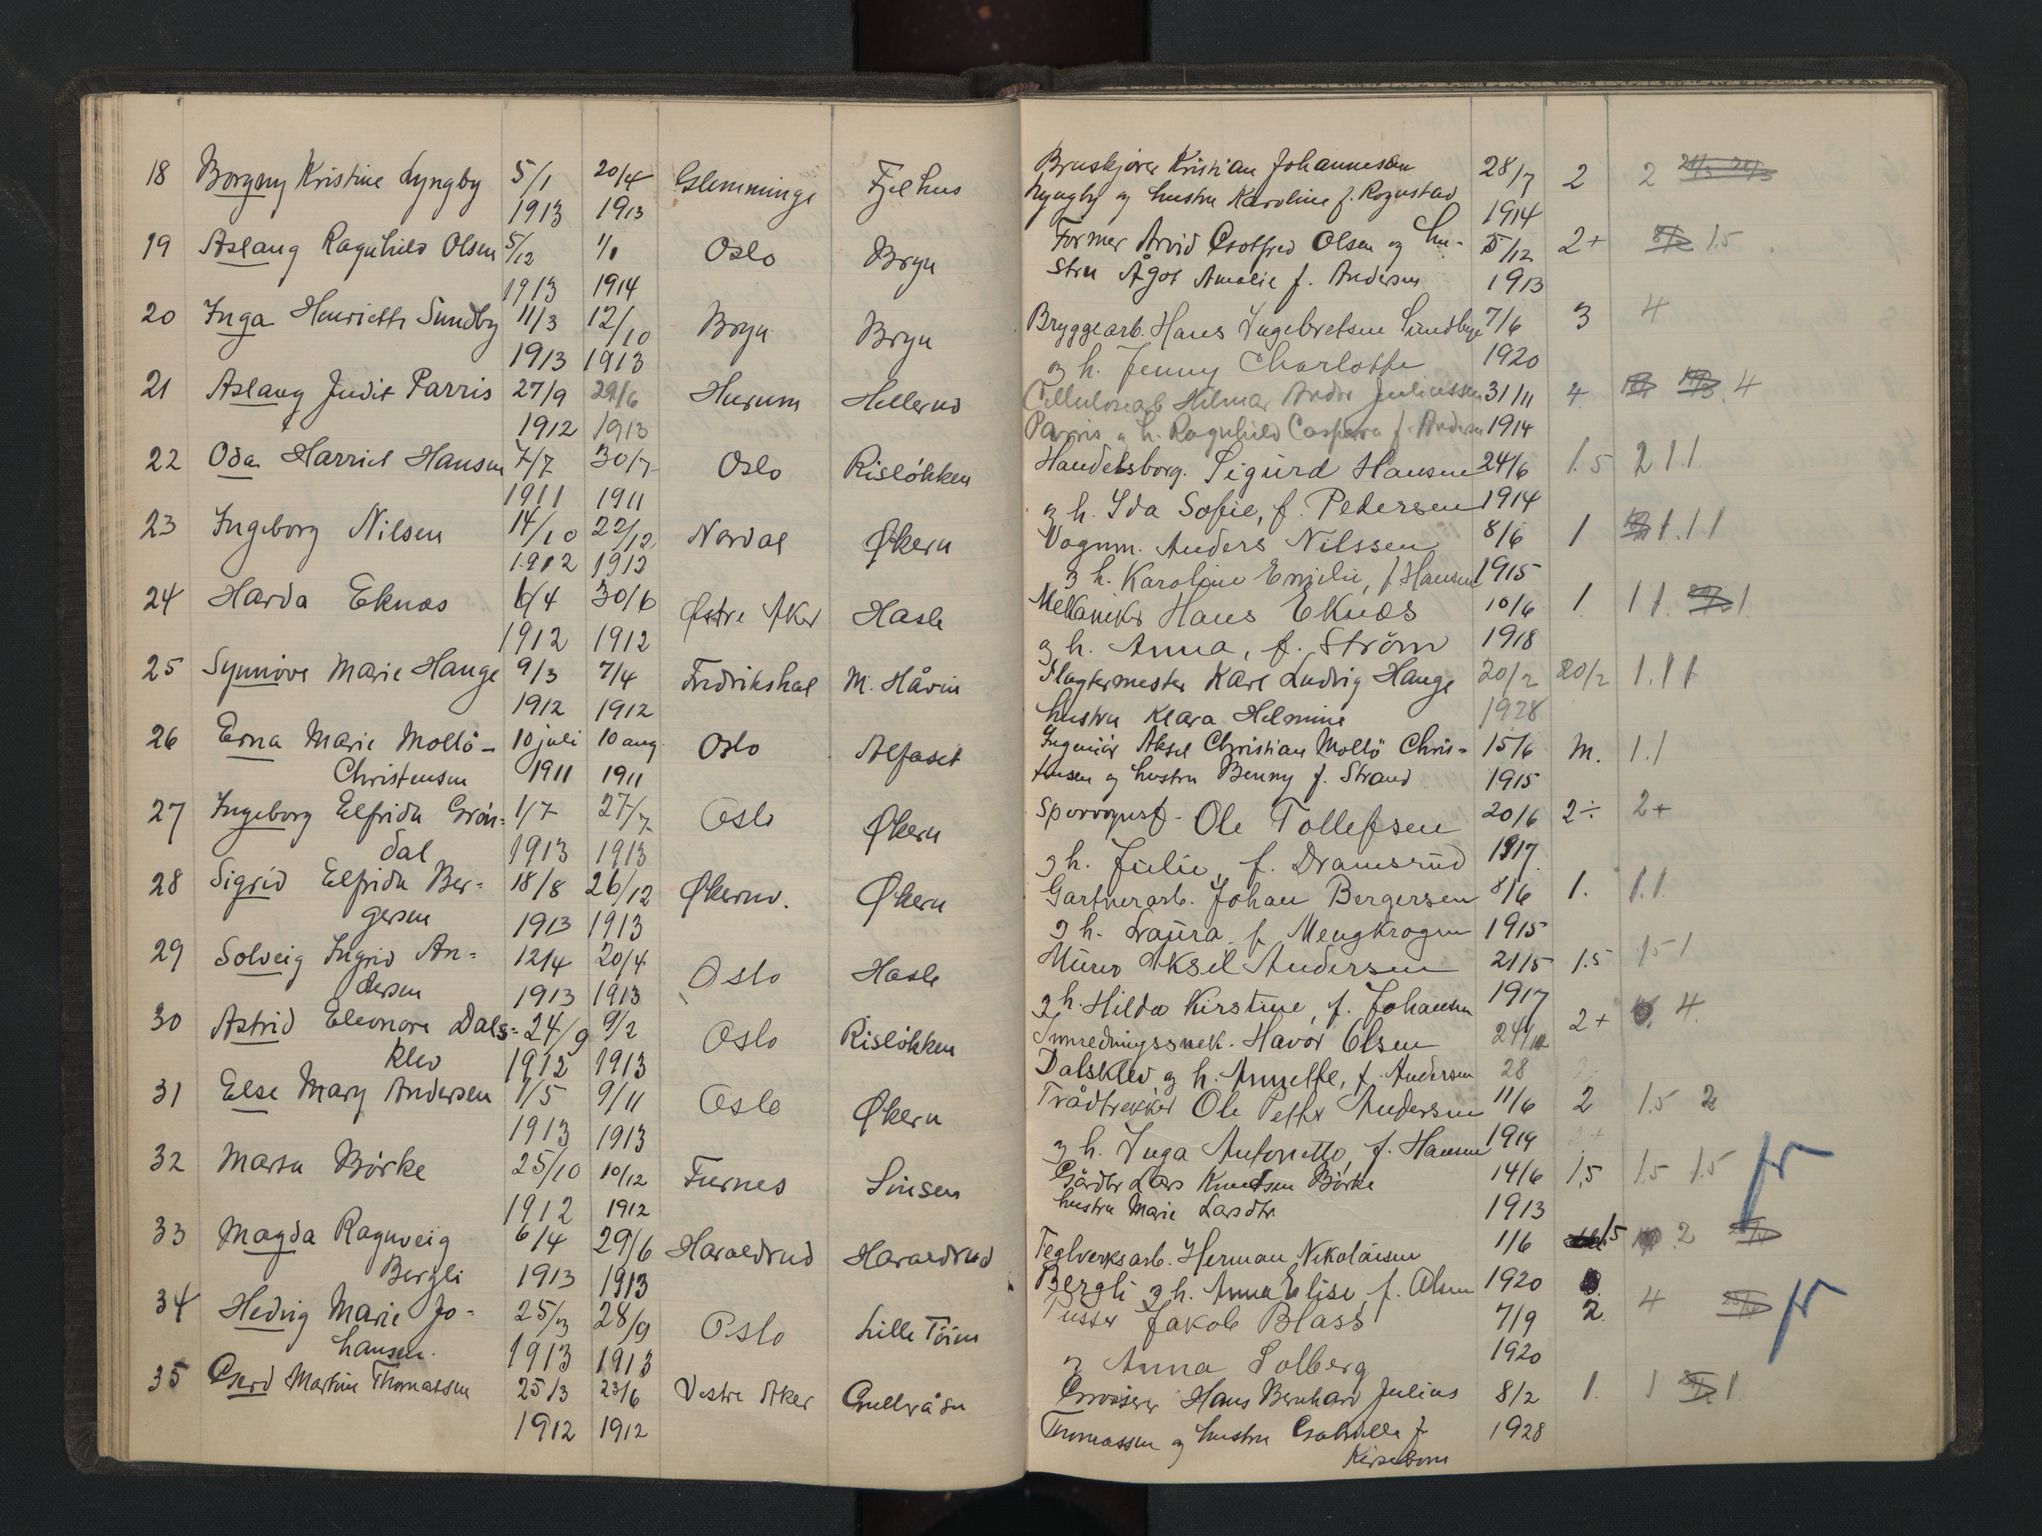 18 Borgny Kristine Lyngby 5/1 20/4 Glemminge Fjelhus Bruskjører Kristian Johannessen 28/7 2 2
1913 1913 Lyngby og hustru Karoline f. Rognstad 1914
19 Aslaug Ragnhild Olsen 5/12 1/1 Oslo Bryn Former Arvid Gotfred Olsen og hu- 5/12 2+ 1.5
1913 1914 stru Ågot Amalie f. Andersen 1913
20 Inga Henriette Sundby 11/3 12/10 Bryn Bryn Bryggearb. Hans Ingebretsen Sundbye 7/6 3 4
1913 1913 og h. Jenny Charlotte 1920
21 Aslaug Judit Parris 27/9 29/6 Hurum Hellerud Cellulosearb Hilmar Andor Juliussen 31/11 4. 4
1912 1913 Parris og h. Ragnhild Caspara f. Andersen 1914
22 Oda Harriet Hansen 7/7 30/7 Oslo Risløkken Handelsborg. Sigurd Hansen 24/6 1.5 2 1.1.
1911 1911 og h. Ida Sofie, f. Pedersen 1914
23 Ingeborg Nilsen 14/10 22/12 Nordal Økern Vognm. Anders Nilssen 8/6 1 1.1.1
1912 1912 og h. Karoline Emilie, f. Hansen 1915
24 Harda Eknæs 6/4 30/6 Østre Aker Hasle Mekaniker Hans Eknæs 10/6 1. 1 1. 1.
1912 1912 og h. Anna, f. Strøm 1918
25 Synnöve Marie Hauge 9/3 7/4 Fredrikshal M. Håvin Slagtermester Karl Ludvig Hauge 20/2 20/2 1.1 1
1912 1912 hustru Klara Helmine 1928
26 Erna Marie Mollö- 10 juli 10 aug. Oslo Alfaset Ingeniör Aksel Christian Mollö Chris= 15/6 M. 1.1
Christensen 1911 1911 tensen og hustru Benny f. Strand 1915
27 Ingeborg Elfrida Grön= 1/7 27/7 Oslo Økern Sporvognsf. Ole Tollefsen 20/6 2÷ 2+
dal 1913 1913 og h. Julie, f. Dramsrud 1917.
28 Sigrid Elfrida Ber= 18/8 26/12 Økernv. Økern Gartnerarb. Johan Bergersen 8/6 1. 1.1.
gersen 1913 1913 og h. Laura f. Mengkrogen 1915
29 Solveig Ingrid An= 12/4 20/4 Oslo Hasle Murer Aksel Andersen 21/5 1.5 1.5 1
dersen 1913 1913 og h. Hilda Kirstine, f. Johansen 1917
30 Astrid Eleonore Dals= 24/9 9/2 Oslo Risløkken Innredningssnek. Havor Olsen 24/10 2+ 4.
klev 1912 1913 Dalsklev og h. Annette, f. Andersen 28
31 Else Mary Andersen 1/5 9/11 Oslo Økern Trådtrekker Ole Petter Andersen 11/6 2 1.5 2
1913 1913 og h. Inga Antonette, f. Hansen 1919
32 Marta Börke 25/10 10/12 Furnes Sinsen Gårdbr Lars Knudsen Börke 14/6 1,5 1.5 1.5 fr
1912 1912 hustru Marie Larsdtr. 1913
33 Magda Ragnveig 6/4 29/6 Haraldrud Haraldrud Teglverksarb. Herman Nikolaisen 1/6 1.5 2
Bergli 1913 1913 Bergli og h. Anna Elise, f. Olsen 1920
34 Hedvig Marie Jo= 25/3 28/9 Oslo Lille Töien Pusser Jakob Blass 7/9 2. 4 fr
hansen. 1913 1913 og Anna Solberg 1920
35 Gerd Martine Thomassen 25/3 23/6 Vestre Aker Gullråsn Grosserer Hans Bernhard Julius 8/2 1. 1 1.
1912 1912 Thomassen og hustru f. 1928
Kirsebom